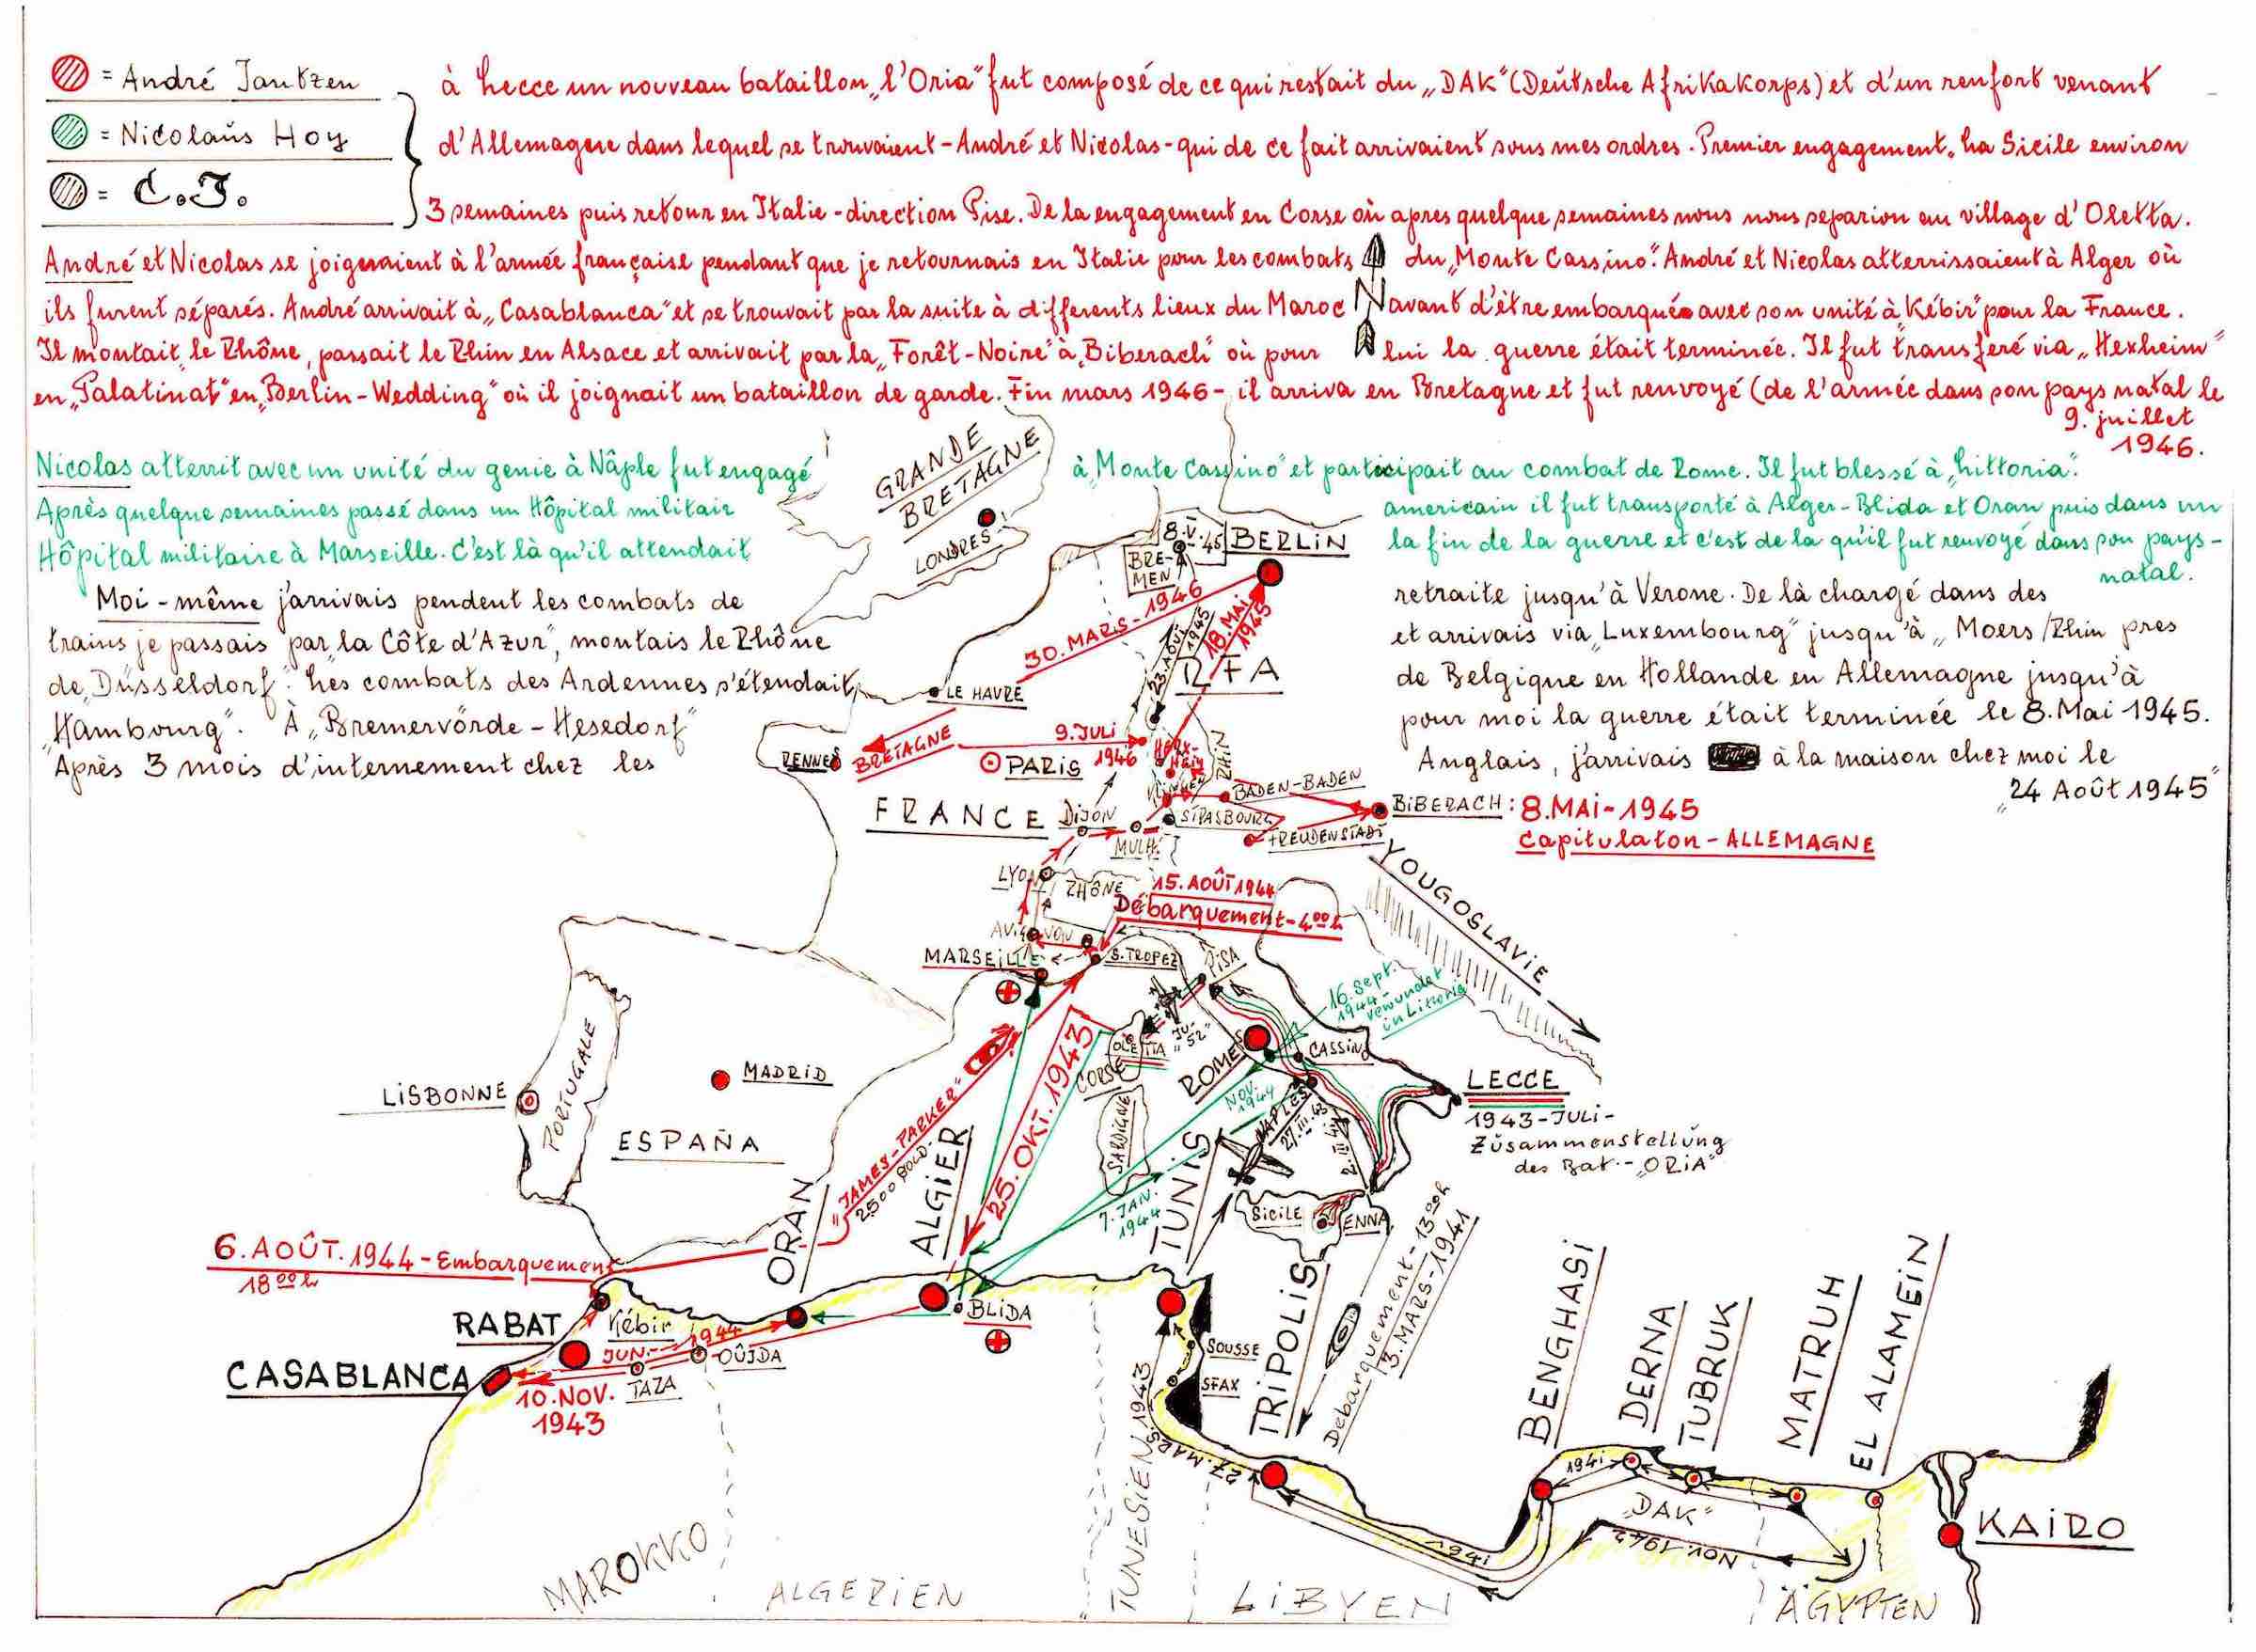 = André Jantzen
= Nicolaüs Hoy
= C.J.
à Lecce un nouveau bataillon „l'Oria" fut composé de ce qui restait du „DAK" (Deütsche Afrikakorps) et d'un renfort venant
d'Allemagne dans lequel se trouvaient - André et Nicolas - qui de ce fait arrivaient sous mes ordres. Premier engagement „La Sicile environ
3 semaines puis retour en Italie - direction Pise. De la engagement en Corse où apres quelque semaines nous nous separion au village d'Oletta.
André et Nicolas se joignaient à l'armée française pendant que je retournais en Italie pour les combats du „Monte Cassino". André et Nicolas atterrissaient à Alger où
ils furent séparés. André arrivait à „Casablanca" et se trouvait par la suite à differents lieux du Maroc avant d'être embarqué avec son unité à „Kébir" pour la France.
Il montait le Rhône, passait le Rhin en Alsace et arrivait par la „Forêt-Noire" à „Biberach" où pour lui la guerre était terminée. Il fut transferé via „Hexheim"
en „Palatinat" en „Berlin-Wedding" où il joignait un bataillon de garde. Fin mars 1946 - il arriva en Bretagne et fut renvoyé (de l'armée dans son pays natal le
9. juillet
1946.
N
Nicolas atterrit avec un unité du genie à Nâple fut engagé à „Monte Cassino" et participait au combat de Rome. Il fut blessé à „Littoria".
Après quelque semaines passé dans un Hôpital militair americain il fut transporté à Alger-Blida et Oran puis dans un
Hôpital militaire à Marseille. C'est là qu'il attendait la fin de la guerre et c'est de la qu'il fut renvoyé dans son pays-
natal.
Moi-même j'arrivais pendent les combats de retraite jusqu'à Verone. De là chargé dans des
trains je passais par „la Côte d'Azur", montais le Rhône et arrivais via „Luxembourg" jusqu'à „Moers/Rhin pres
de „Düsseldorf". Les combats des Ardennes s'étendait de Belgique en Hollande en Allemagne jusqu'à
„Hambourg". À „Bremervörde-Hesedorf" pour moi la guerre était terminée le 8. Mai 1945.
Après 3 mois d'internement chez les Anglais, j'arrivais à la maison chez moi le
„24 Août 1945"
GRANDE
BRETAGNE
LONDRES
8.V.45
BRE-
MEN
BERLIN
30.MARS-1946
18.MAI
1945
23.AOÛT
1945
RFA
LE HAVRE
RENNES
BRETAGNE
9.JULI
1946
PARIS
HERX-
HEIM
RHIN
FRANCE
DIJON
MULH.
STRASBOURG
BADEN-BADEN
FREUDENSTADT
BIBERACH: 8.MAI-1945
Capitulaton-ALLEMAGNE
LYON
RHÔNE
15.AOÛT 1944
Débarquement-4ºº h
YOUGOSLAVIE
AVIGNON
MARSEILLE
S.TROPEZ
PISA
JU-
"52"
OLETTA
CORSE
SARDIGNE
16.Sept.
1944-
verwundet
in Littoria
ROME
CASSINO
NAPLES
27.III.43
LECCE
1943-JULI-
Züsammenstellüng
des Bat.-„ORIA"
NOV.
1944
7.JAN.
1944
25.OKT.1943
"JAMES-PARKER"
2500 SOLD.
LISBONNE
PORTUGALE
MADRID
ESPAÑA
6.AOÛT.1944-Embarquement
18ºº h
ORAN
ALGIER
TUNIS
SICILE
ENNA
RABAT
Kébir
CASABLANCA
JUN.-1944
OÛJDA
TAZA
10.NOV.
1943
BLIDA
SOUSSE
SFAX
27.MARS.1943
TRIPOLIS
Debarquement-13ººh
13.MARS-1941
BENGHASI
DERNA
TUBRUK
MATRUH
EL ALAMEIN
KAIRO
1941
„DAK"
NOV.1942
1941
MAROKKO
ALGERIEN
TUNESIEN
LIBYEN
ÄGYPTEN